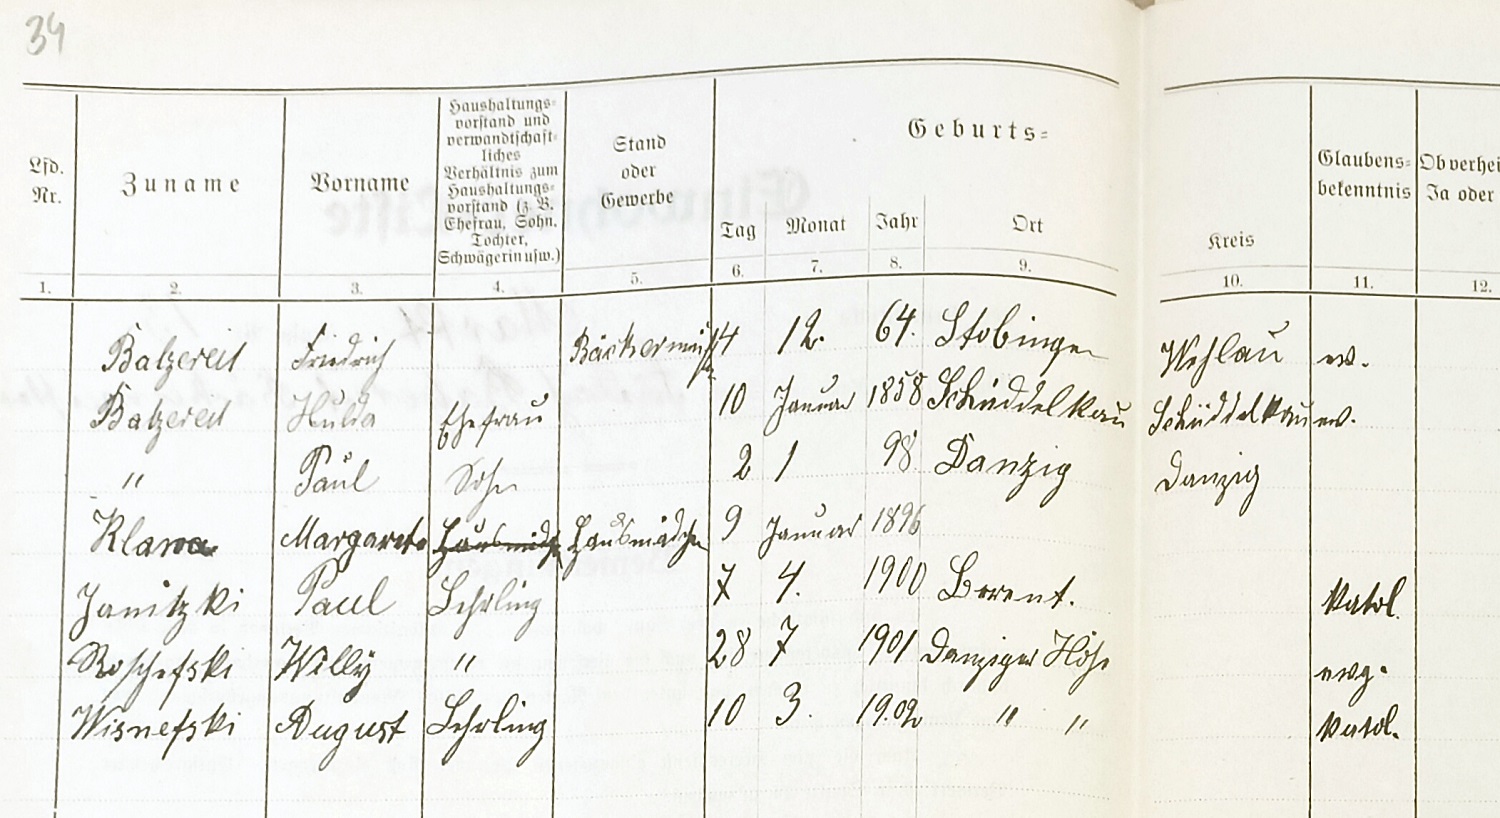 34
Lfd. Nr. Zuname Vorname Haushaltungs= vorstand und verwandtschaft= liches Verhältnis zum Haushaltungs= vorstand (z. B. Ehefrau, Sohn, Tochter, Schwägerin usw.) Stand oder Gewerbe Geburts= Tag Monat Jahr Ort Kreis Glaubens= bekenntnis Ob verhei Ja oder
1. 2. 3. 4. 5. 6. 7. 8. 9. 10. 11. 12.
Balzereit Friedrich 4 12. 64. Stobingen Wehlau ev.
Balzereit Hulda Ehefrau 10 Januar 1858 Schüddelkau Schüddelkau ev.
" Paul Sohn 2 1 98 Danzig Danzig
Klawa Margarete Hausmädch Hausmädchen 9 Januar 1896
Janitzki Paul Lehrling 7 4. 1900 Berent. katol.
Roschefski Willy " 28 7 1901 Danziger Höhe evg.
Wisnefski August Lehrling 10 3. 1902 " " katol.